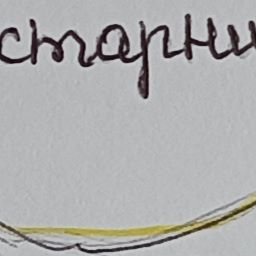 старни